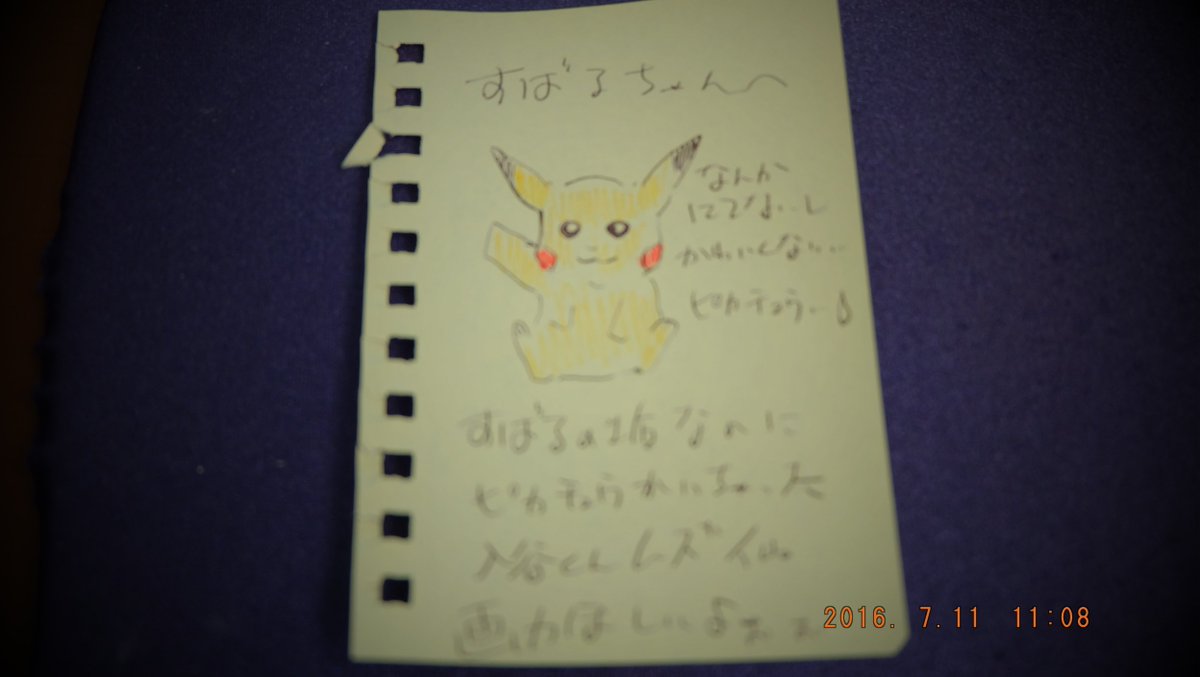 すばるちゃんへ
なんか
にてないし
かわいくない…
ピカチュウ…♪
すばるの絵なのに
ピカチュウかいちゃった
入谷くんムズイm
画力ほしいよぉぉ
2016. 7.11 11:08